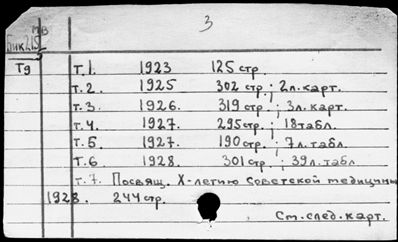 3
МВ
Пик215
Тд
т.1. 1923 125 стр.
т.2. 1925 302 стр.; 2 л. карт.
т.3. 1926. 319 стр.; 3 л. карт.
т.4. 1927. 295 стр.; 18 табл.
т.5. 1927. 190 стр.; 7 л. табл.
т.6 1928. 301 стр.; 39 л. табл
т.7. Посвящ. X-летию Советской медицины
1928. 244 стр.
См. след. карт.